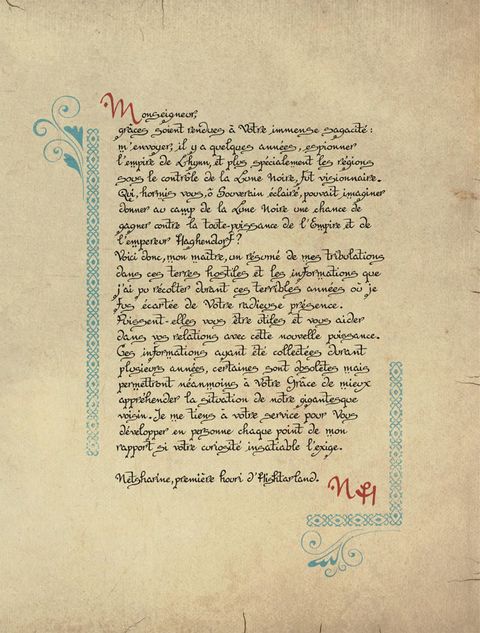 Monseigneur,
grâces soient rendues à Votre immense sagacité :
m'envoyer, il y a quelques années, espionner
l'empire de Lhynn, et plus spécialement les régions
sous le contrôle de la Lune Noire, fut visionnaire.
Qui, hormis vous, ô Souverain éclairé, pouvait imaginer
donner au camp de la Lune Noire une chance de
gagner contre la toute-puissance de l'Empire et de
l'empereur Haghendorf ?
Voici donc, mon maître, un résumé de mes tribulations
dans ces terres hostiles et les informations que
j'ai pu récolter durant ces terribles années où je
fus écartée de Votre radieuse présence.
Puissent-elles vous être utiles et vous aider
dans vos relations avec cette nouvelle puissance.
Ces informations ayant été collectées durant
plusieurs années, certaines sont obsolètes mais
permettront néanmoins à Votre Grâce de mieux
appréhender la situation de notre gigantesque
voisin. Je me tiens à votre service pour Vous
développer en personne chaque point de mon
rapport si votre curiosité insatiable l'exige.
Netsharine, première houri d'Hishtarland.